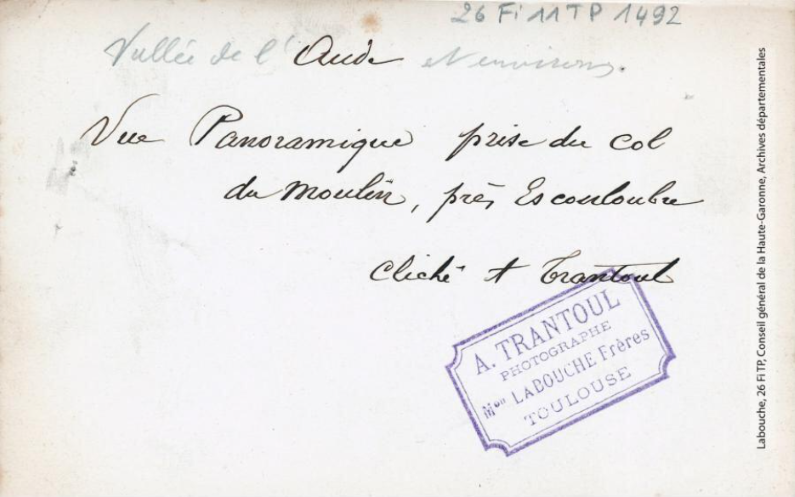 26 Fi 11 TP 1492
Vallée de l'Aude et environs.
Vue Panoramique prise du col
du Moulin, près Escouloubre
Cliché A Trantoul
A. TRANTOUL
PHOTOGRAPHE
Mon LABOUCHE Frères
TOULOUSE
Labouche, 26 Fi TP, Conseil général de la Haute-Garonne, Archives départementales